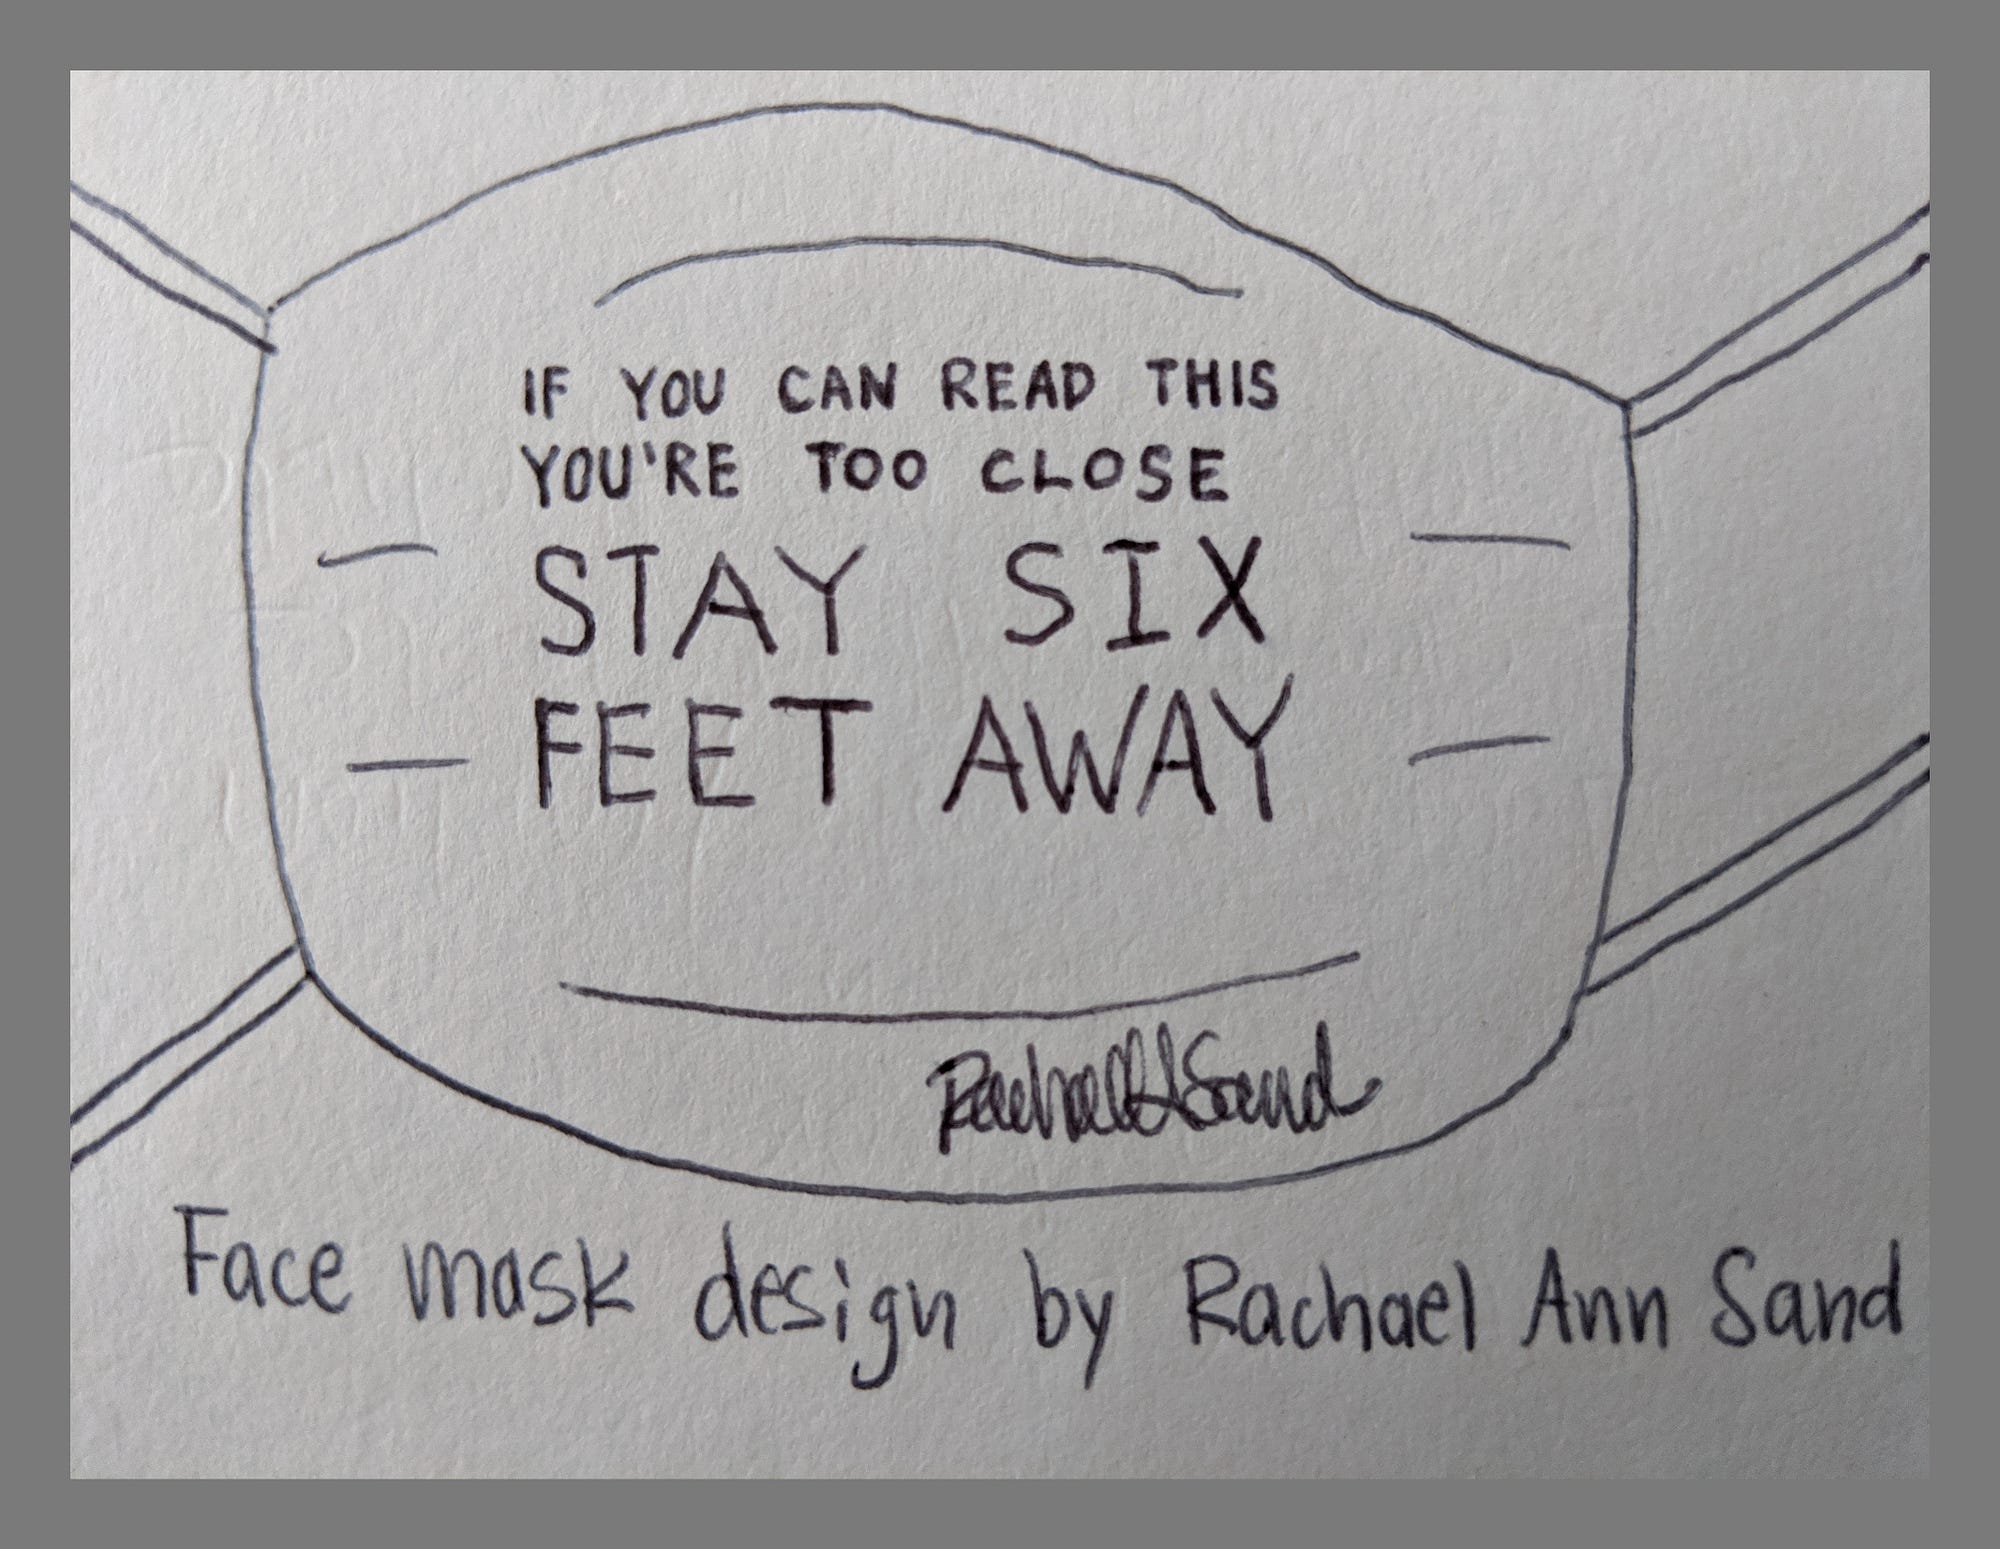 IF YOU CAN READ THIS
YOU'RE TOO CLOSE
STAY SIX
FEET AWAY
Rachael A Sand
Face mask design by Rachael Ann Sand